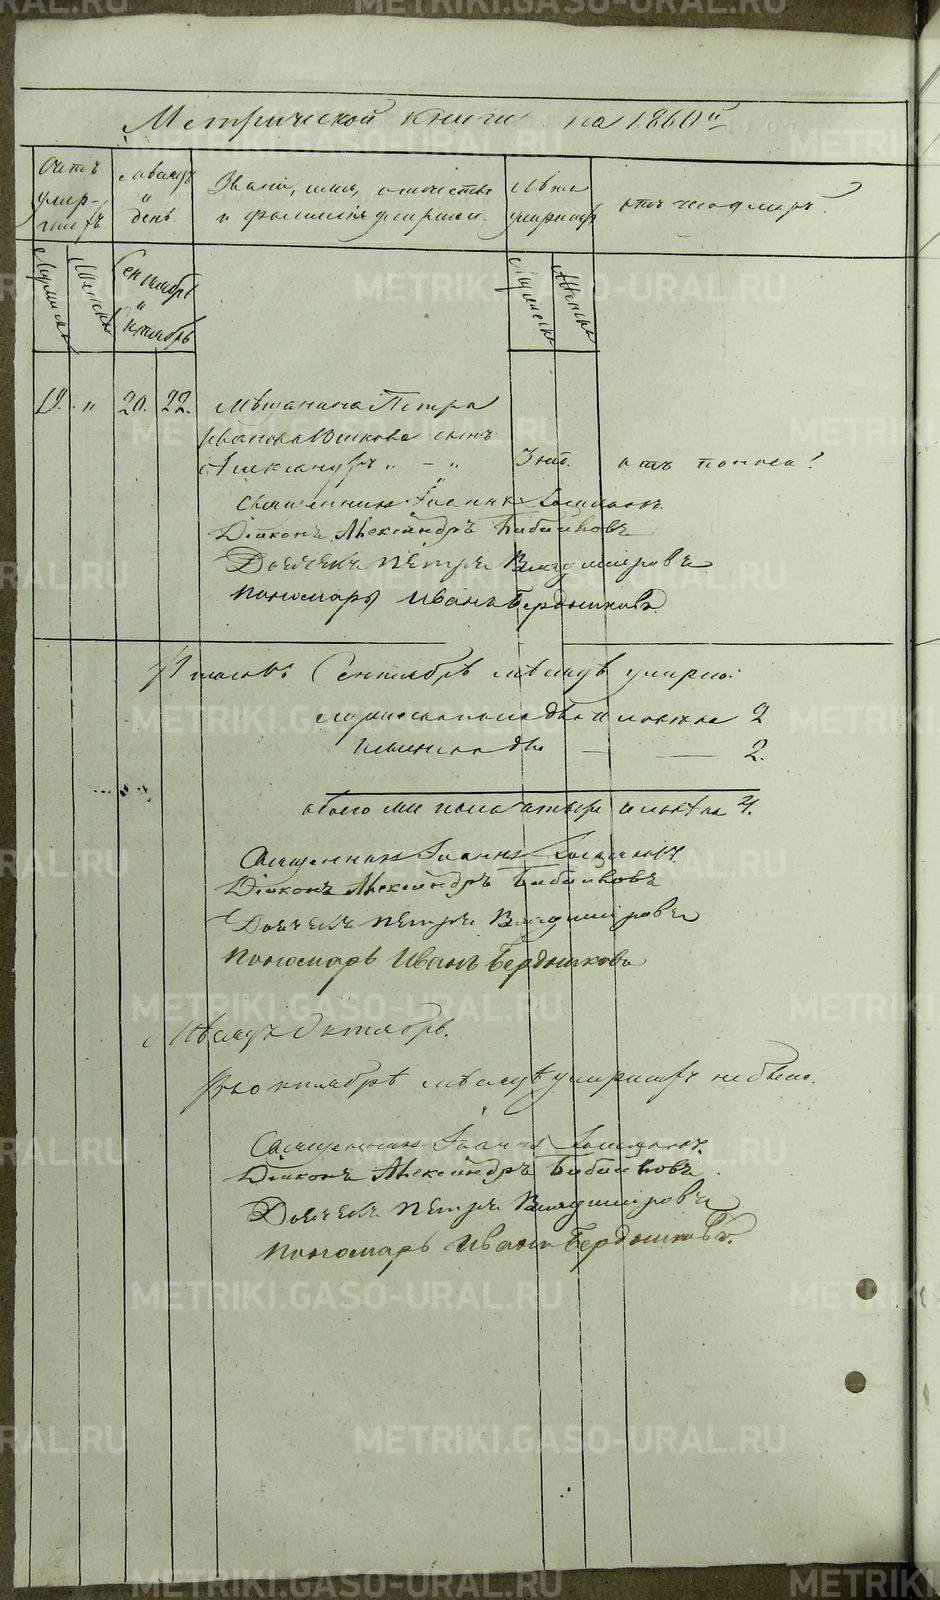 Метрической книги на 1860й
Счетъ умер- шихъ
Мѣсяцъ и день.
Званіе, имя, отчество и фамилія умершихъ.
Лѣта умершихъ
отъ чего умеръ.
Мужеска
Женска
Сентябрь и Октябрь
Мужеска
Женска
19. " 20. 22. Мѣщанина Петра
Иванова сынъ
Александръ " – " 3 нед. отъ поноса.
Священникъ Іоаннъ
Діаконъ Александръ Бибиковъ
Дьячекъ Петръ Владиміровъ
Пономарь Иванъ Бердниковъ.
Итого въ Сентябрѣ мѣсяцѣ умерло:
мужеска пола два человѣка 2
женска два — — 2.
обоего пола четыре человѣка 4.
Священникъ Іоаннъ
Діаконъ Александръ Бибиковъ
Дьячекъ Петръ Владиміровъ
Пономарь Иванъ Бердниковъ
Мѣсяцъ Октябрь.
Въ октябрѣ мѣсяцѣ умершихъ не было.
Священникъ Іоаннъ
Діаконъ Александръ Бибиковъ
Дьячекъ Петръ Владиміровъ
Пономарь Иванъ Бердниковъ.
METRIKI.GASO-URAL.RU